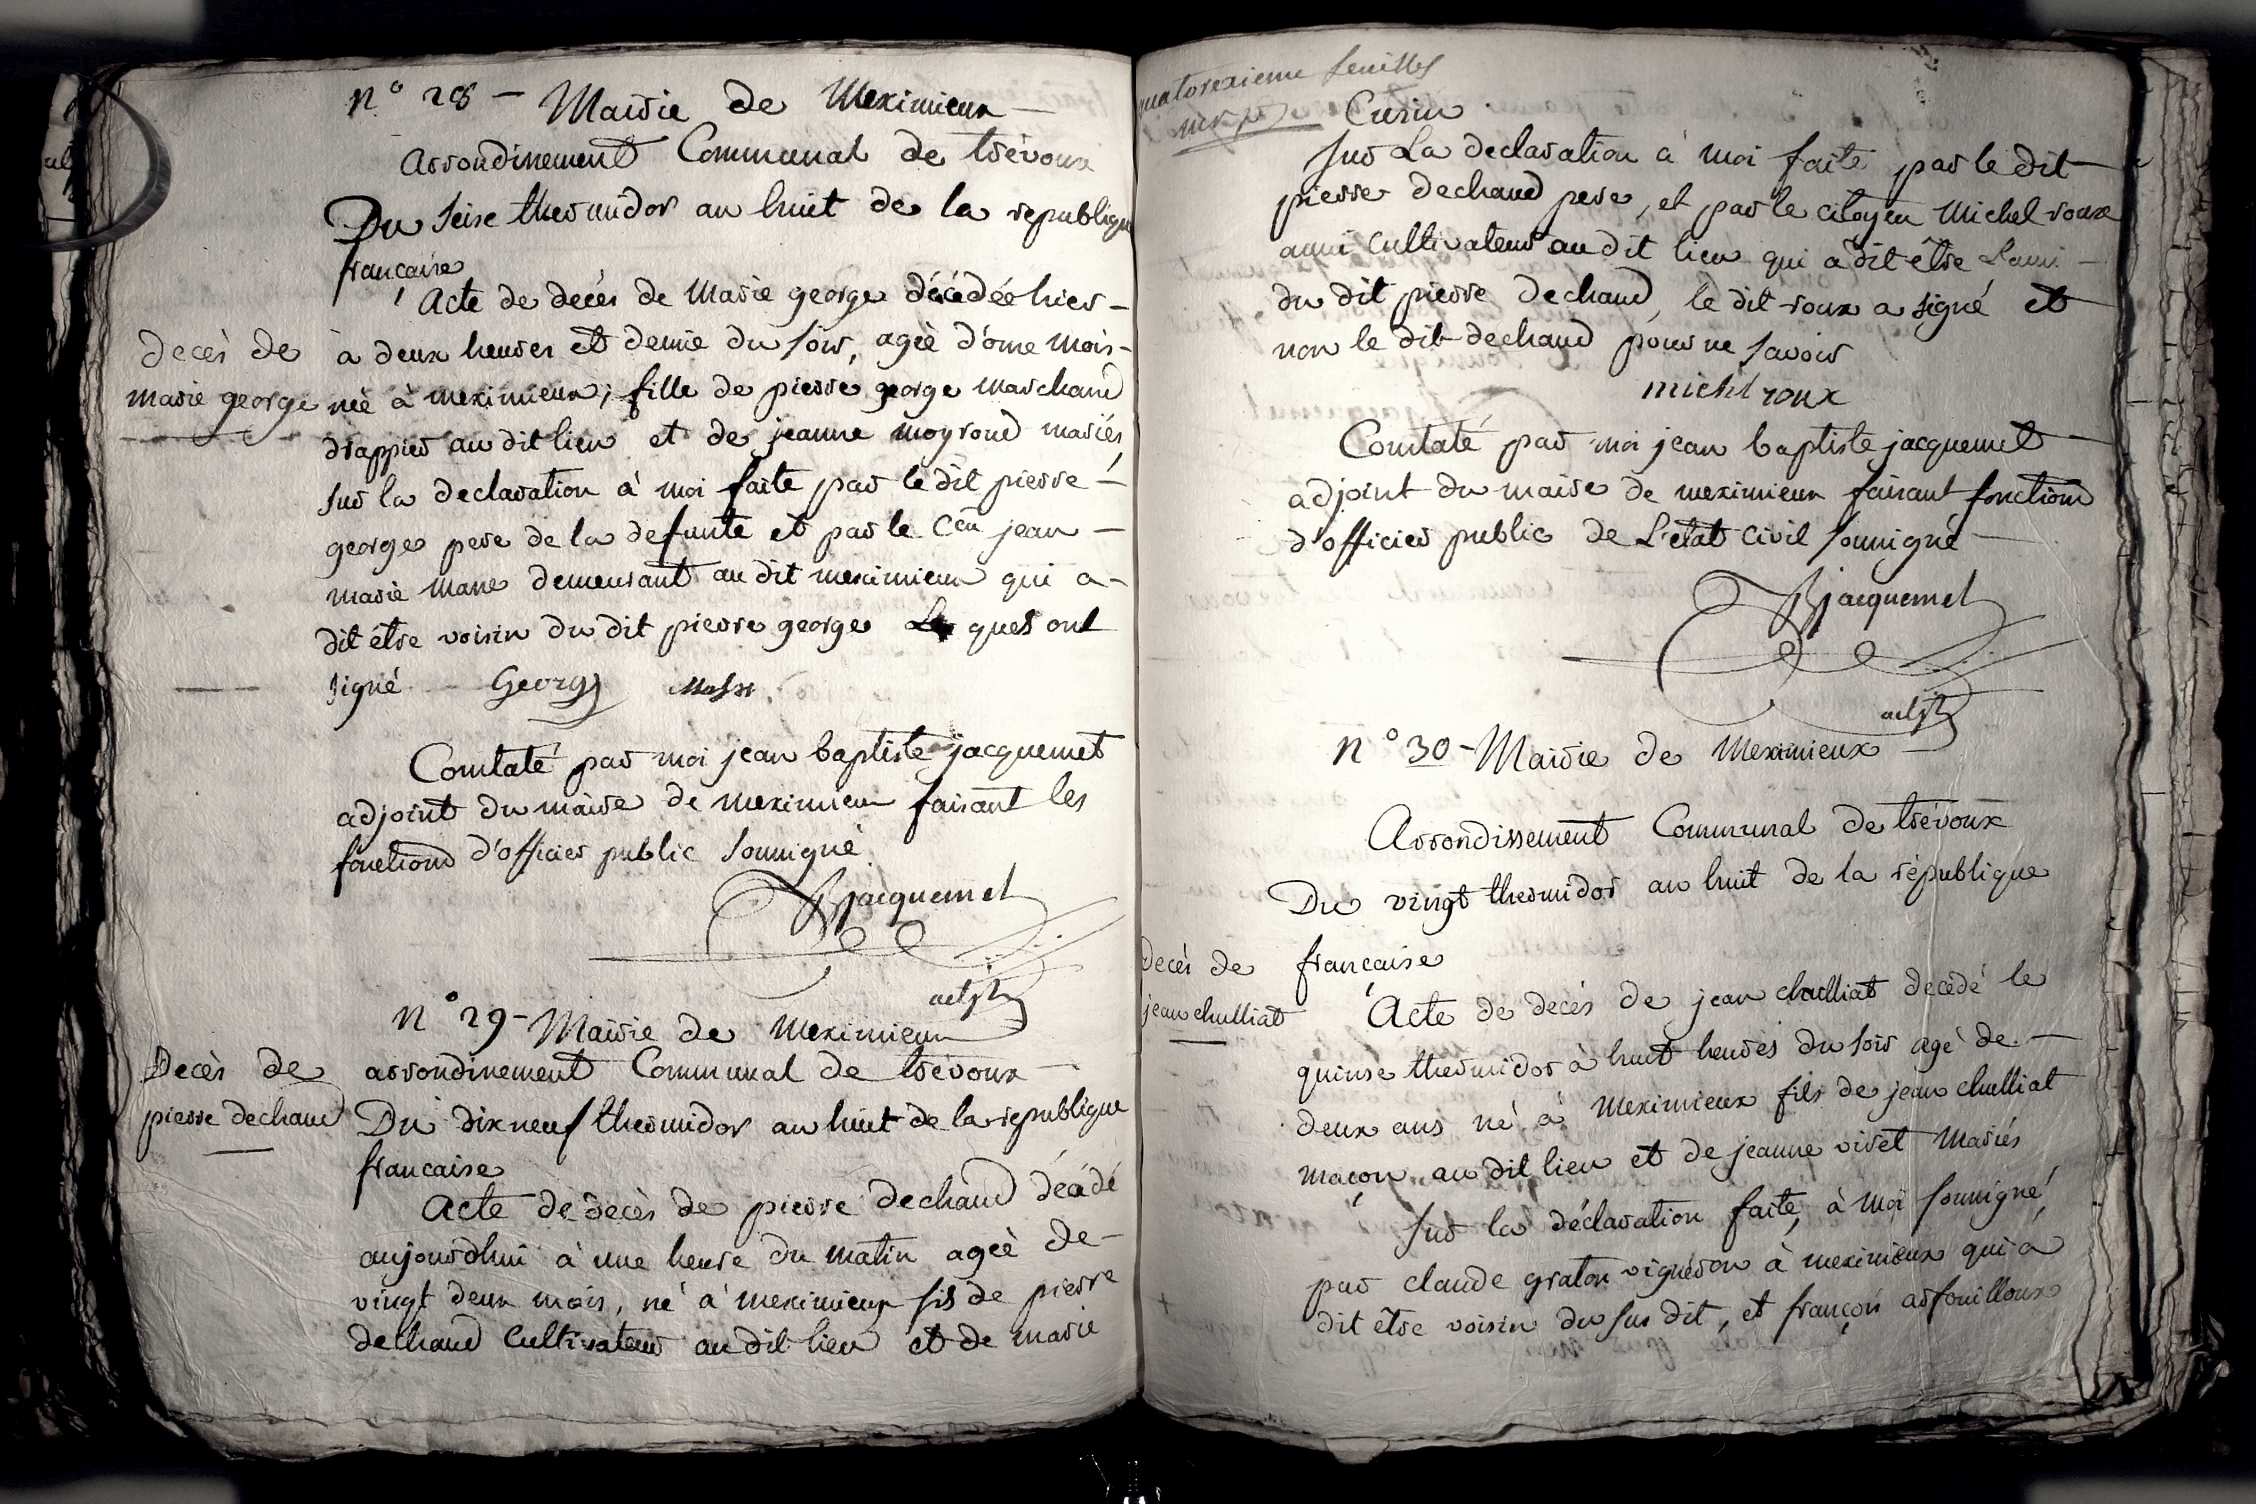 n° 28 - Mairie de Meximieux
arrondissement Communal de trévoux
Du seise thermidor an huit de la republique
francaise
Acte de decès de Marie george décédée hier
Decès de
marie george
à deux heures et demie du soir, agée d'onze mois
née à meximieux, fille de pierre george marchand
drappier au dit lieu et de jeanne moyroud mariés,
sur la declaration à moi faite par le dit pierre
george pere de la defunte et par le Cen jean
marie demeurant au dit meximieux qui a
dit être voisin du dit pierre george Les quels ont
signé George
Constaté par moi jean baptiste jacquemet
adjoint du maire de meximieux faisant les
fonctions d'officier public soussigné
Jacquemet
adjt
n° 29 - Mairie de Meximieux
arrondissement Communal de trévoux
Decès de
pierre dechaud
Du dix neuf thermidor an huit de la republique
francaise
Acte de decès de pierre dechaud décédé
aujourdhui à une heure du matin agée de
vingt deux mois, né à meximieux fils de pierre
dechaud Cultivateur au dit lieu et de marie
quatorzieme feuillet
Curin
sur La declaration à moi faite par le dit
pierre dechaud pere, et par le citoyen Michel roux
aussi Cultivateur au dit lieu qui a dit être L'ami
du dit pierre dechaud, le dit roux a signé et
non le dit dechaud pour ne savoir
michel roux
Constaté par moi jean baptiste jacquemet
adjoint du maire de meximieux faisant fonctions
d'officier public de L'etat Civil soussigné
Jacquemet
adjt
n° 30 - Mairie de Meximieux
Arrondissement Communal de trévoux
Du vingt thermidor an huit de la république
française
Decès de
jean chulliat
Acte de decès de jean chulliat decedé le
quinse thermidor à huit heures du soir agé de
deux ans né à Meximieux fils de jean chulliat
maçon au dit lieu et de jeanne vivet Mariés
sur la déclaration faite, à moi soussigné,
par claude graton vigneron à meximieux qui a
dit être voisin du sus dit, et françois arfouilloux